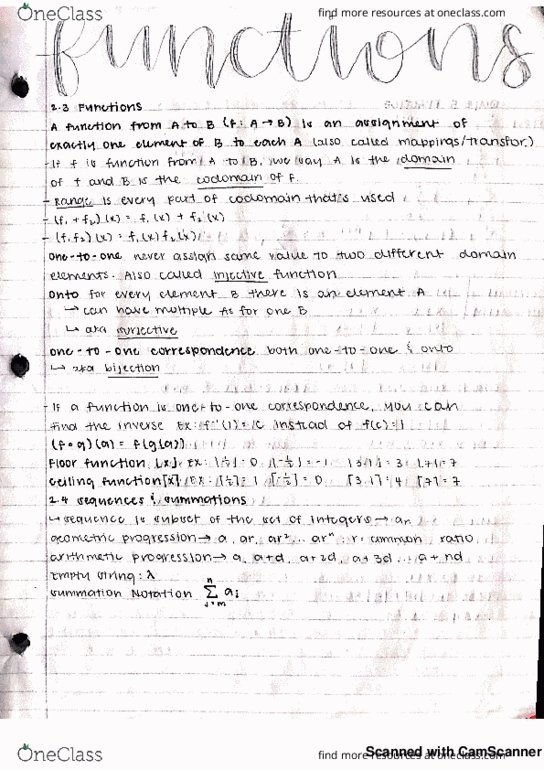 OneClass
find more resources at oneclass.com
functions
2.3 Functions
A function from A to B (f: A → B) is an assignment of
exactly one element of B to each A (also called mappings/transfor.)
- If f is function from A to B, we say A is the domain
of f and B is the codomain of f.
- Range is every part of codomain that's used
- (f₁ + f₂)(x) = f₁(x) + f₂(x)
- (f₁f₂)(x) = f₁(x)f₂(x)
one-to-one never assign same value to two different domain
elements. Also called injective function
onto for every element B there is an element A
↳ can have multiple As for one B
↳ aka surjective
one-to-one correspondence both one-to-one & onto
↳ aka bijection
- If a function is one-to-one correspondence, you can
find the inverse Ex: f⁻¹(1)=c instead of f(c)=1
(f∘g)(a) = f(g(a))
Floor function ⌊x⌋ Ex: ⌊½⌋ = 0 ⌊-½⌋ = -1 ⌊3.1⌋ = 3 ⌊7⌋ = 7
Ceiling function ⌈x⌉ Ex: ⌈½⌉ = 1 ⌈-½⌉ = 0 ⌈3.1⌉ = 4 ⌈7⌉ = 7
2.4 sequences & summations
↳ sequence is subset of the set of integers → an
geometric progression → a, ar, ar² ... arⁿ : r = common ratio
arithmetic progression → a, a+d, a+2d, a+3d ... a + nd
Empty string: λ
summation Notation n ∑ j=m aj
OneClass
find more resources at oneclass.com
Scanned with CamScanner